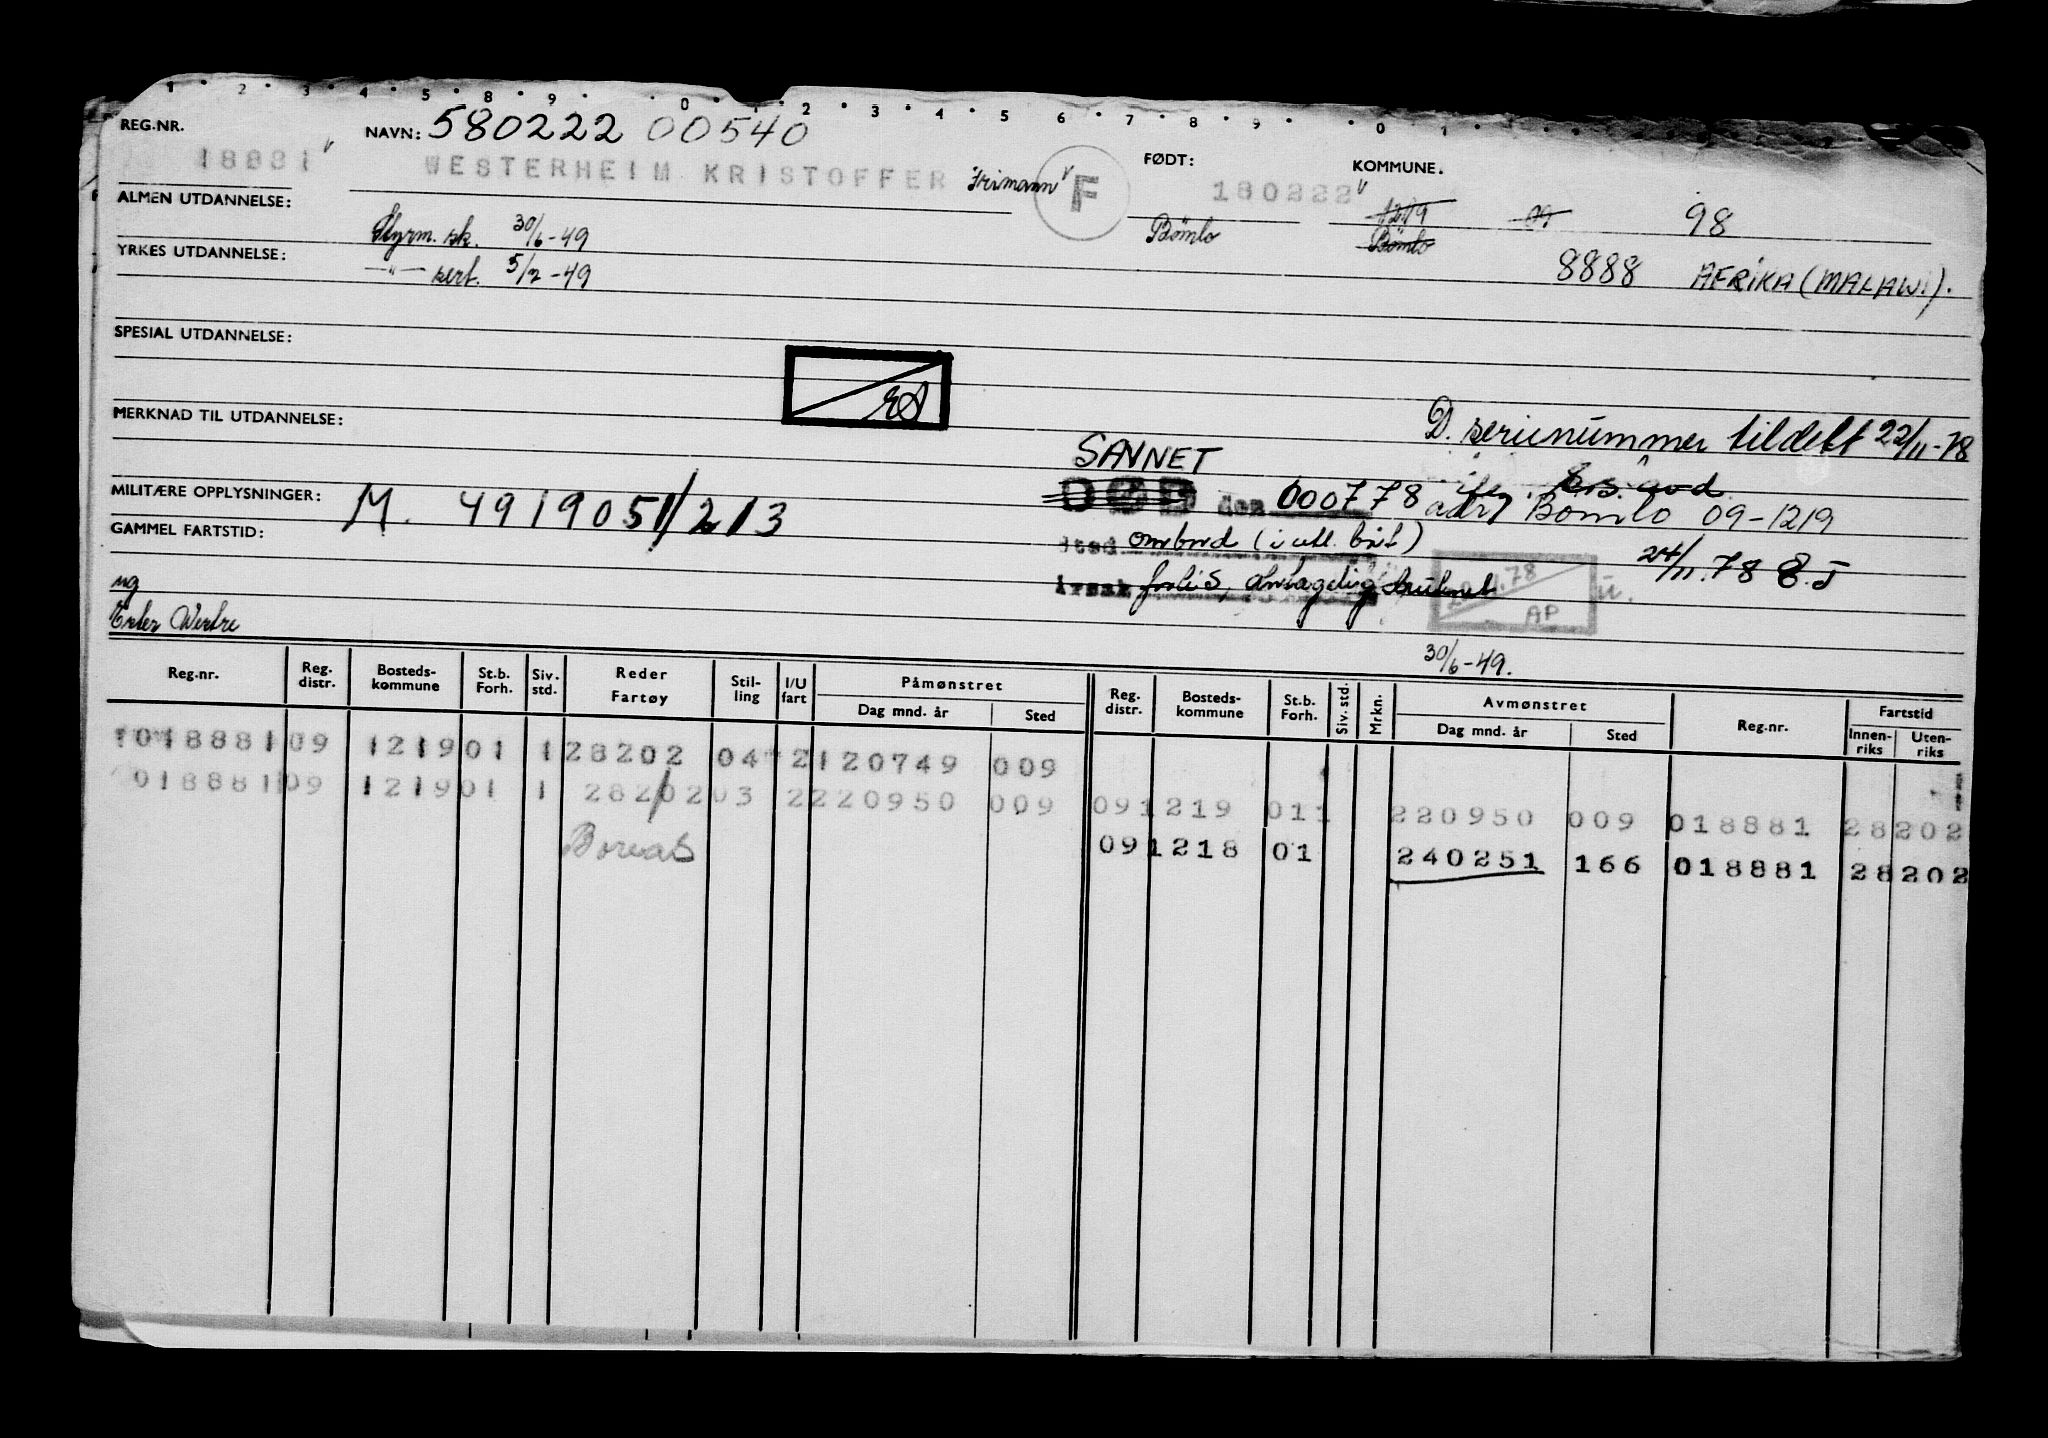 1 · 2 · 3 · 4 · 5 · 8 · 9 · 0 · 1 · 2 · 3 · 4 · 5 · 6 · 7 · 8 · 9 · 0 · 1
REG.NR. NAVN: 580222 00540 FØDT: KOMMUNE.
18881 v WESTERHEIM KRISTOFFER Frimann v F 180222 v 1219 09 98
ALMEN UTDANNELSE: Styrm. sk. 30/6-49 Bömlo Bömlo
YRKES UTDANNELSE: —"— sert. 5/2-49 8888 AFRIKA (MALAWI).
SPESIAL UTDANNELSE:
MERKNAD TIL UTDANNELSE: D. serienummer tildelt 22/11-78
SAVNET
MILITÆRE OPPLYSNINGER: M. 4919051/213 DØD den 000778 adr Bömlo 09-1219
GAMMEL FARTSTID: Sted ombord (i utl. båt) 24/11.78
ug Årsak forlis, antagelig druknet 78 AP
30/6-49.
Reg.nr. Reg. distr. Bosteds- kommune St.b. Forh. Siv. std. Reder Fartøy Stil- ling I/U fart Påmønstret Dag mnd. år Sted Reg. distr. Bosteds- kommune St.b. Forh. Siv. std. Mrkn. Avmønstret Dag mnd. år Sted Reg.nr. Fartstid Innen- riks Uten- riks
018881 09 1219 01 1 28202 04 2 120749 009
018881 09 1219 01 1 28202 03 2 220950 009 09 1219 01 1 220950 009 018881 28202
Boreas 09 1218 01 240251 166 018881 28202